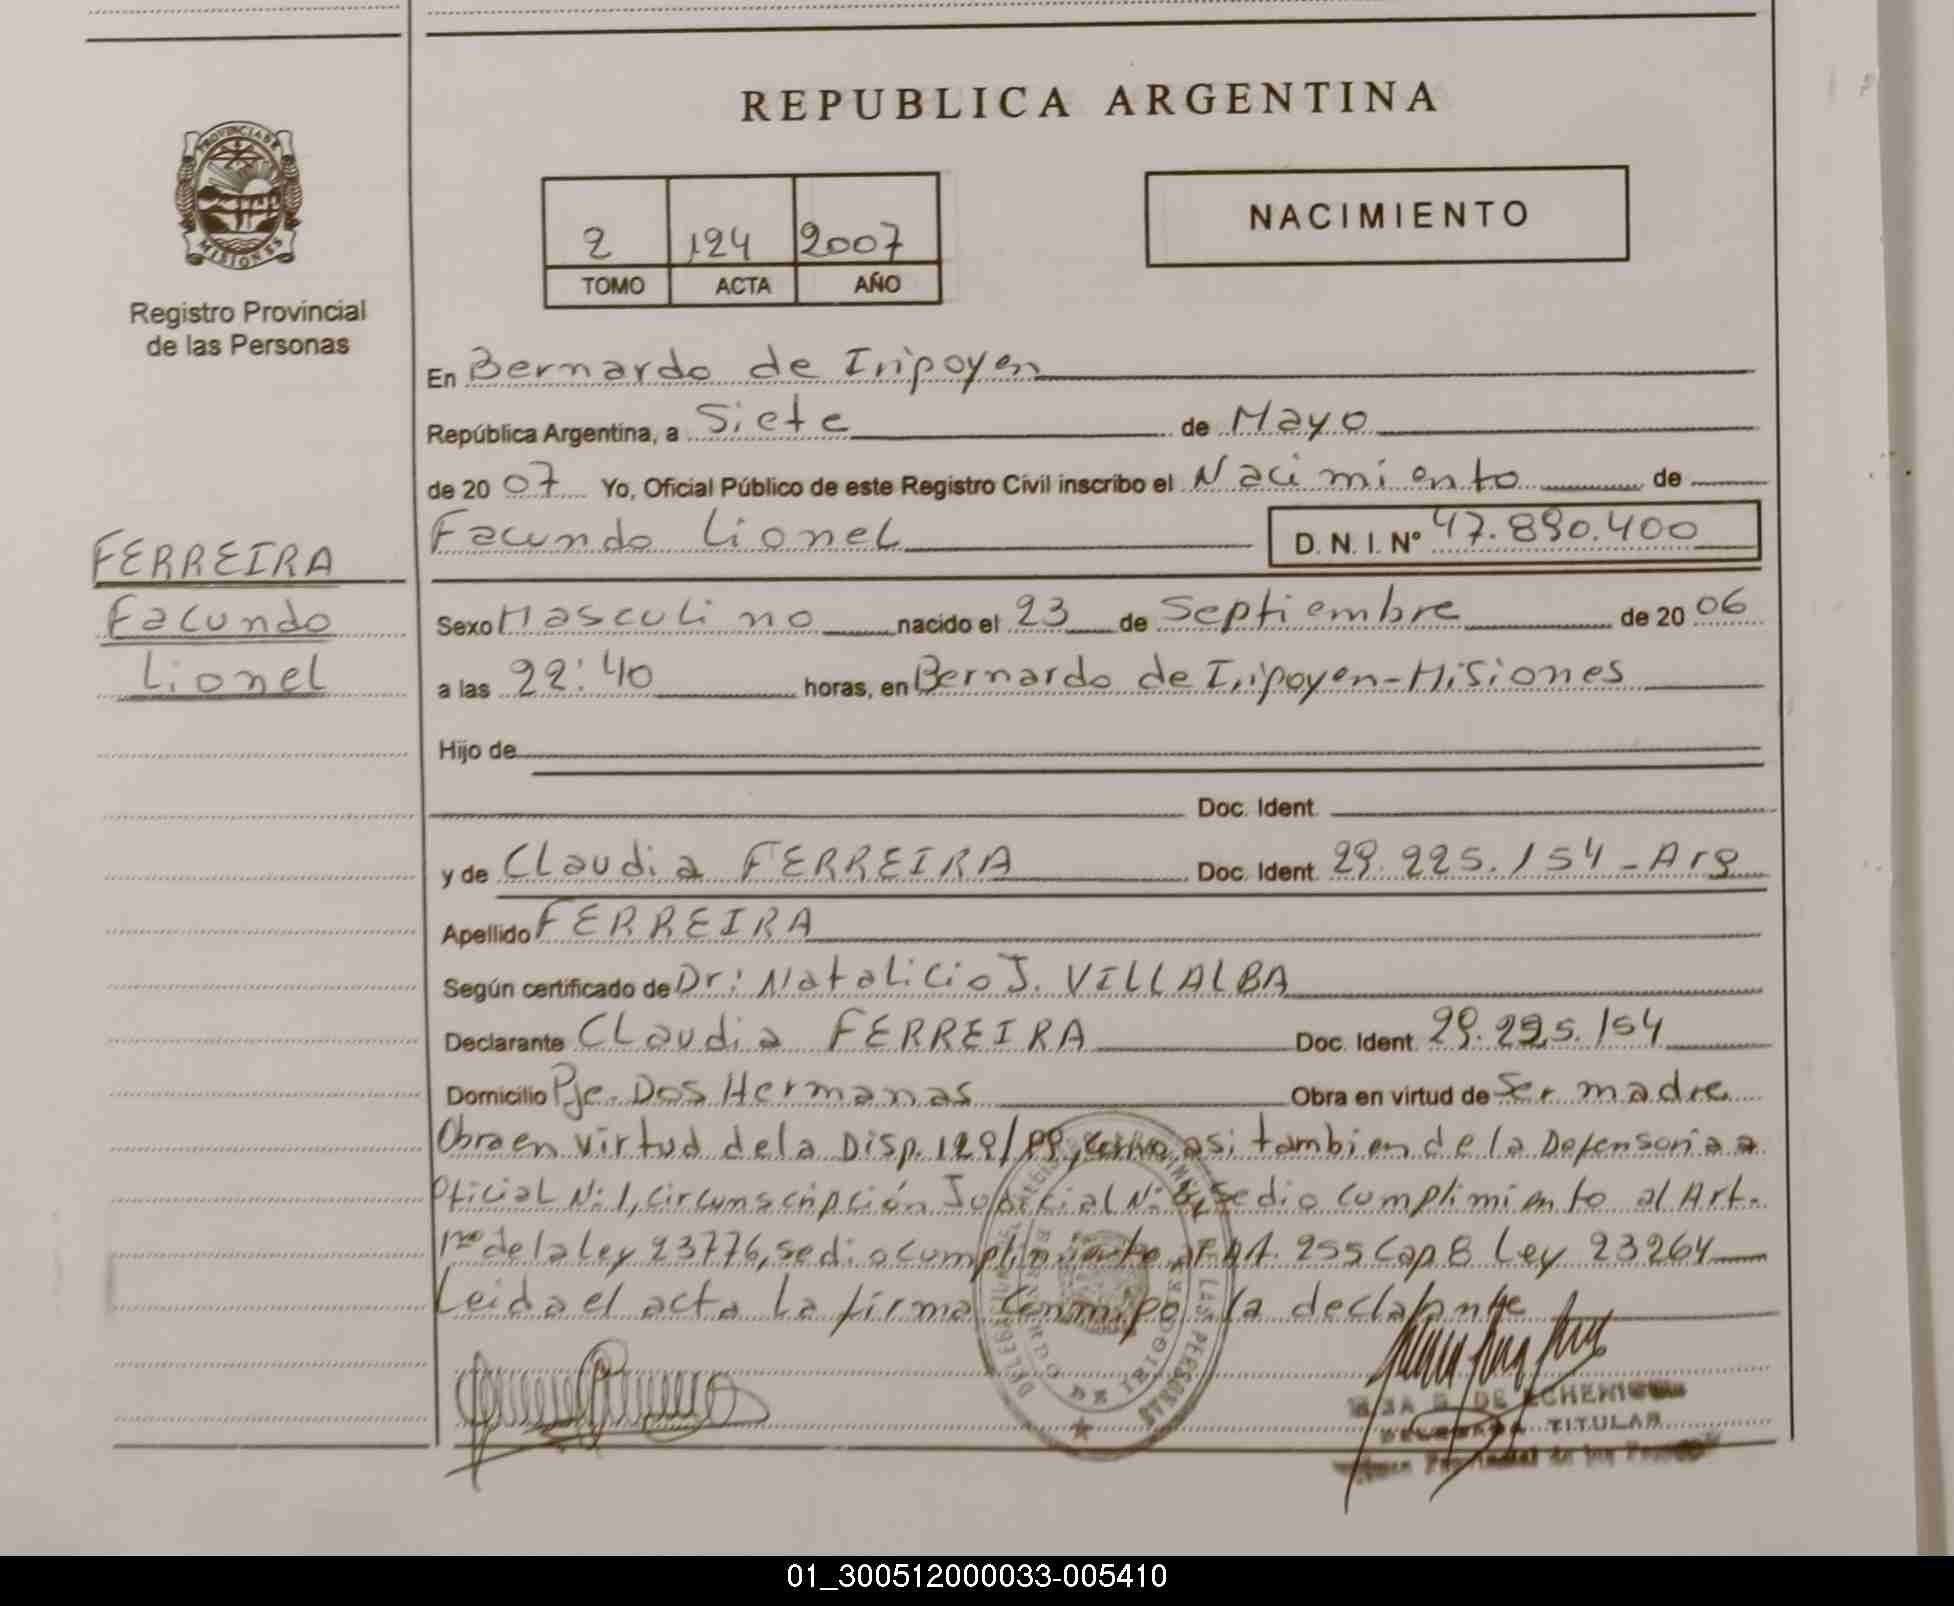 REPUBLICA ARGENTINA
PROVINCIA DE
MISIONES
Registro Provincial
de las Personas
2 124 2007
TOMO ACTA AÑO
NACIMIENTO
En Bernardo de Iripoyen
República Argentina, a Siete de Mayo
de 20 07 Yo, Oficial Público de este Registro Civil inscribo el Nacimiento de
Facundo Lionel D. N. I. Nº 47.890.400
FERREIRA
Facundo
Lionel
Sexo Masculino nacido el 23 de Septiembre de 20 06
a las 22:40 horas, en Bernardo de Iripoyen-Misiones
Hijo de
Doc. Ident.
y de Claudia FERREIRA Doc. Ident. 29.225.154-Arg
Apellido FERREIRA
Según certificado de Dr: Natalicio J. VILLALBA
Declarante Claudia FERREIRA Doc. Ident. 29.225.154
Domicilio Pje. Dos Hermanas Obra en virtud de Ser madre
Obra en virtud de la Disp. 129/99, como asi tambien de la Defensoria
Oficial N: 1, circunscripción Judicial N: se dio cumplimiento al Art.
1ro de la Ley 23776, se dio cumplimiento al Art. 255 Cap 8 Ley 23264
Leida el acta la firma conmigo la declarante
DE ECHENIQUE
TITULAR
Provincial de las
01_300512000033-005410